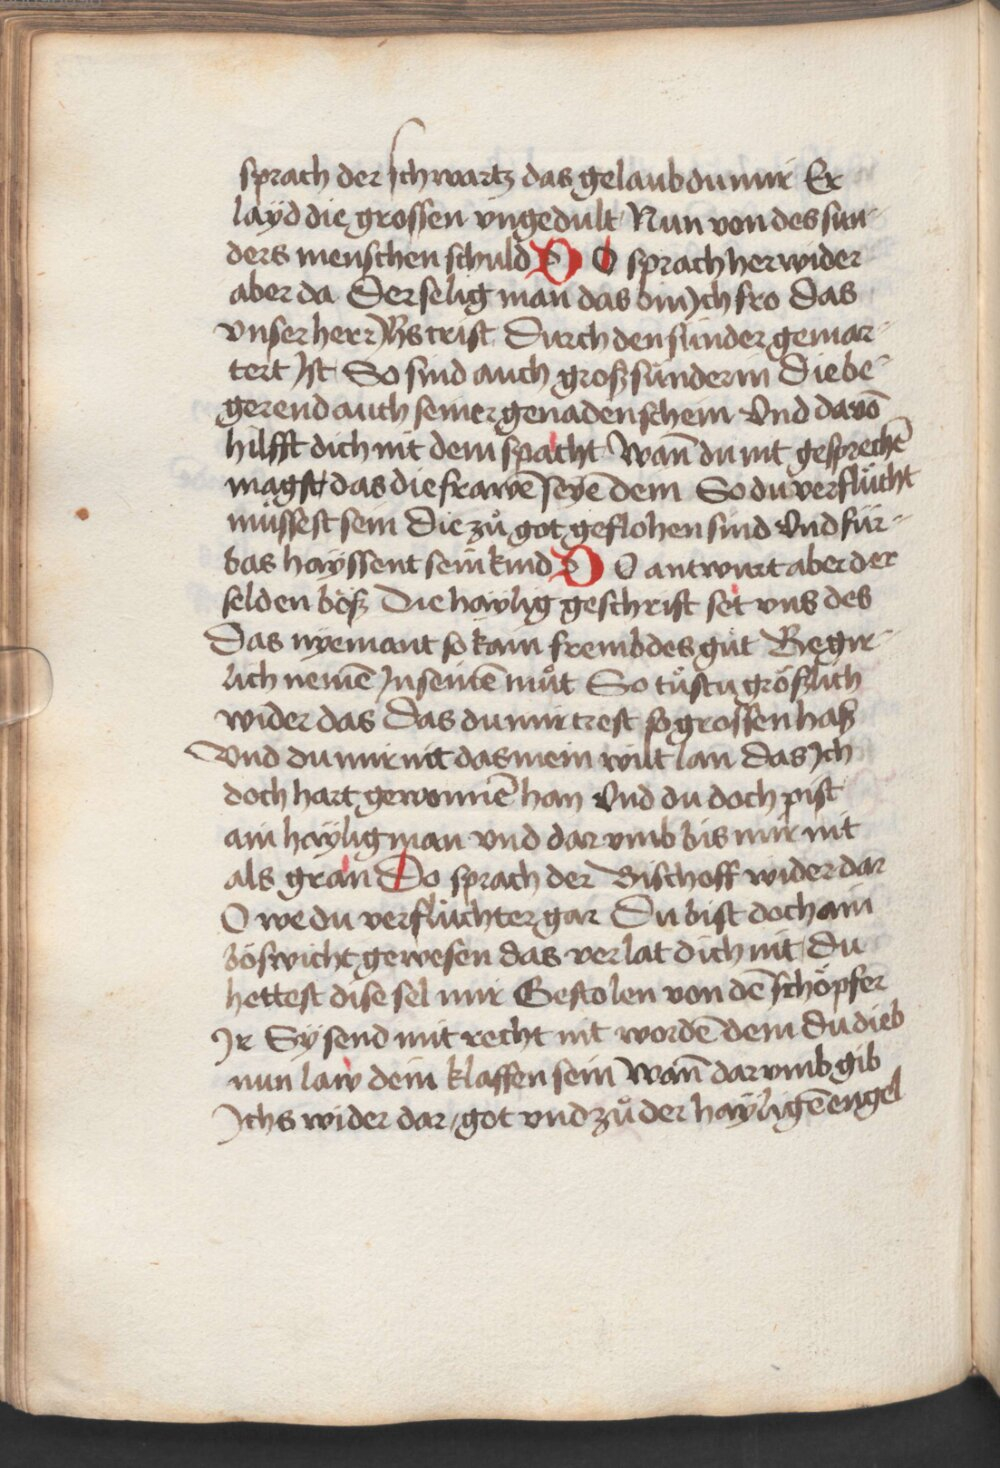 sprach der schwartz das gelaub du mir Er
layd die grossen vngedult Nun von des sun-
ders menschen schuld DO sprach herwider
aber da Der selig man das bin Jch fro das
vnser herr Jhs crist Durch den sünder gemar-
tert Jst So sind auch groß sünderin Die be-
gerend auch seiner genaden schein Vnd davō
hilfft dich nit dein spacht Wañ du nit gesprechē
magst das die frawē seyē dein So du verflůcht
müssest sein Die zů got geflohen sind Vnd für-
bas hayssent sein kind DO antwurt aber der
selden böß Die haylig geschrift set vns des
Das nyemant so kain frembdes gůt Begir-
lich nemē Jn seinē můt So tůstu größlich
wider das Das du mir trest so grossen haß
Vnd du mir nit das mein wilt lan Das Jch
doch hart gewonnē han Vnd du doch pist
ain haylig man vnd dar vmb bis mir nit
als gran Do sprach der Bischoff wider dar
O we du verflůchter gar Du bist doch ain
böswicht gewesen das verlat dich nit Du
hettest dise sel mir Gestolen von dē schöpfer
Jr Sy send mit recht nit wordē dein du dieb
nun law dein klaffen sein Wañ dar vmb gib
Jchs wider dar got vnd zů der hayligē engel